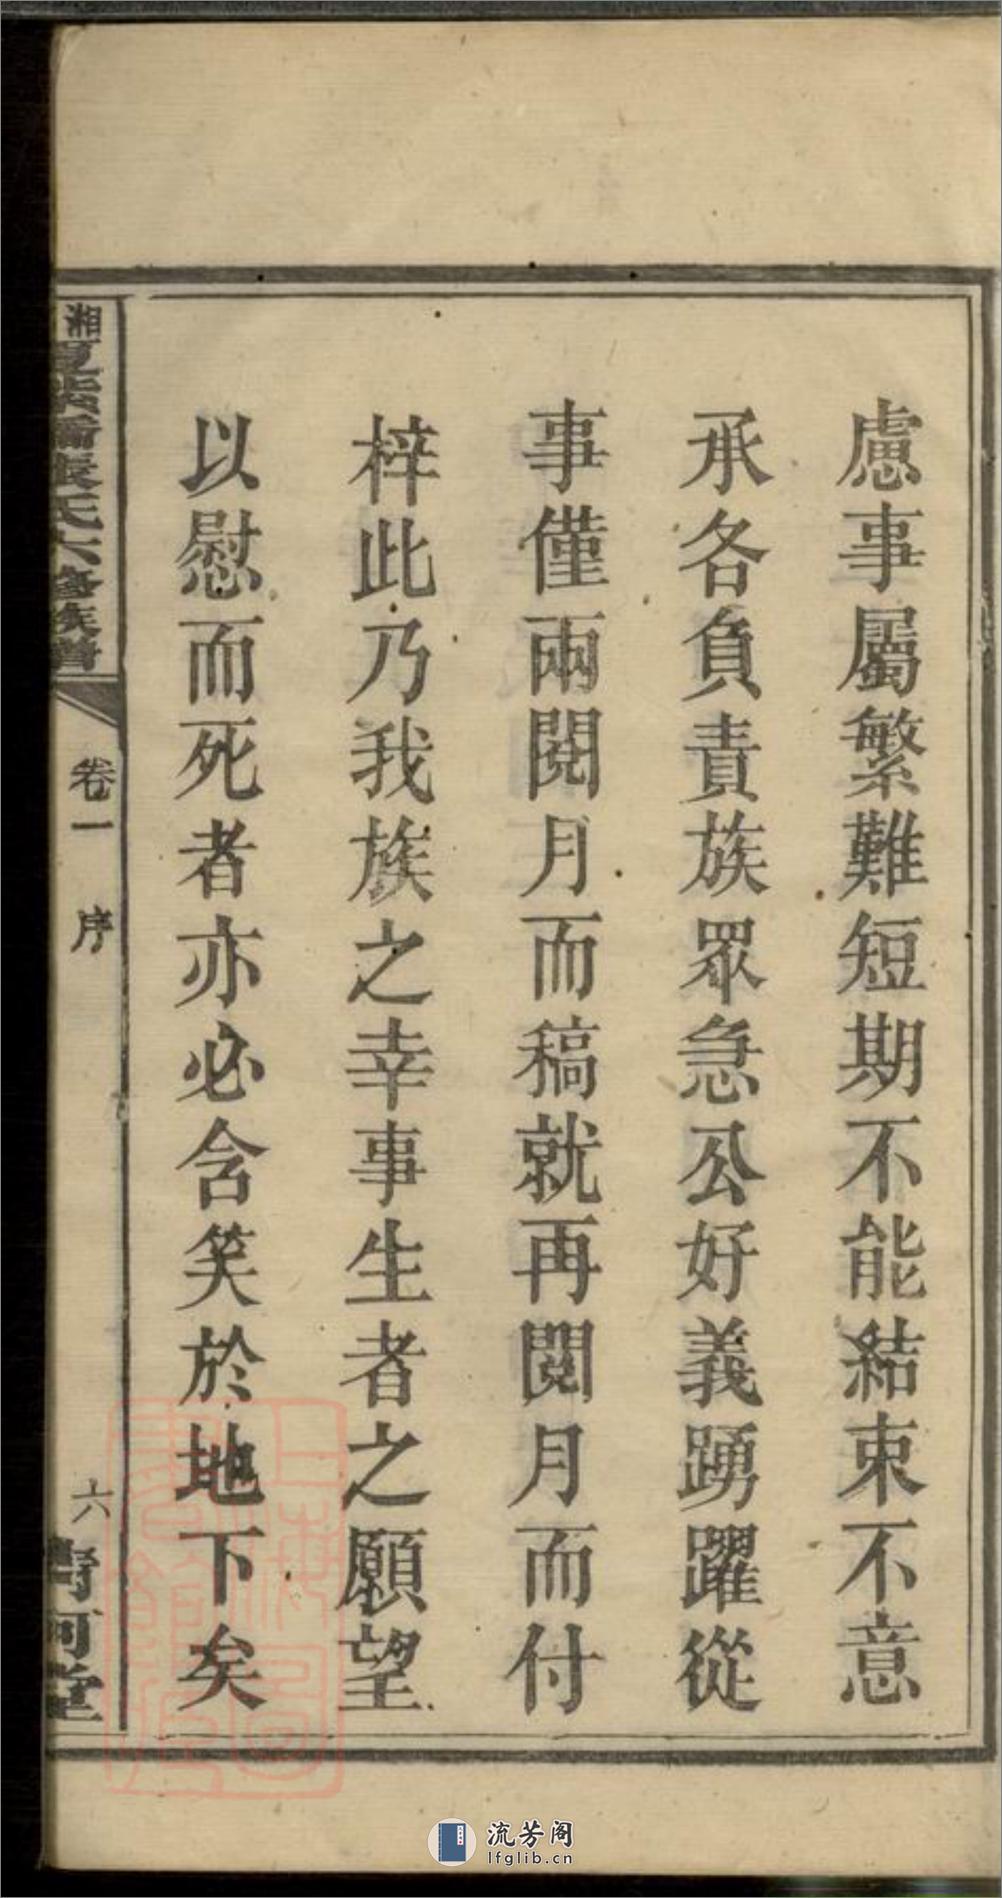 慮事屬繁難短期不能結束不意
承各負責族眾急公好義踴躍從
事僅兩閱月而稿就再閱月而付
梓此乃我族之幸事生者之願望
以慰而死者亦必含笑於地下矣
湘
張氏六修族譜
卷一
序
六
堂
流芳阁
lfglib.cn